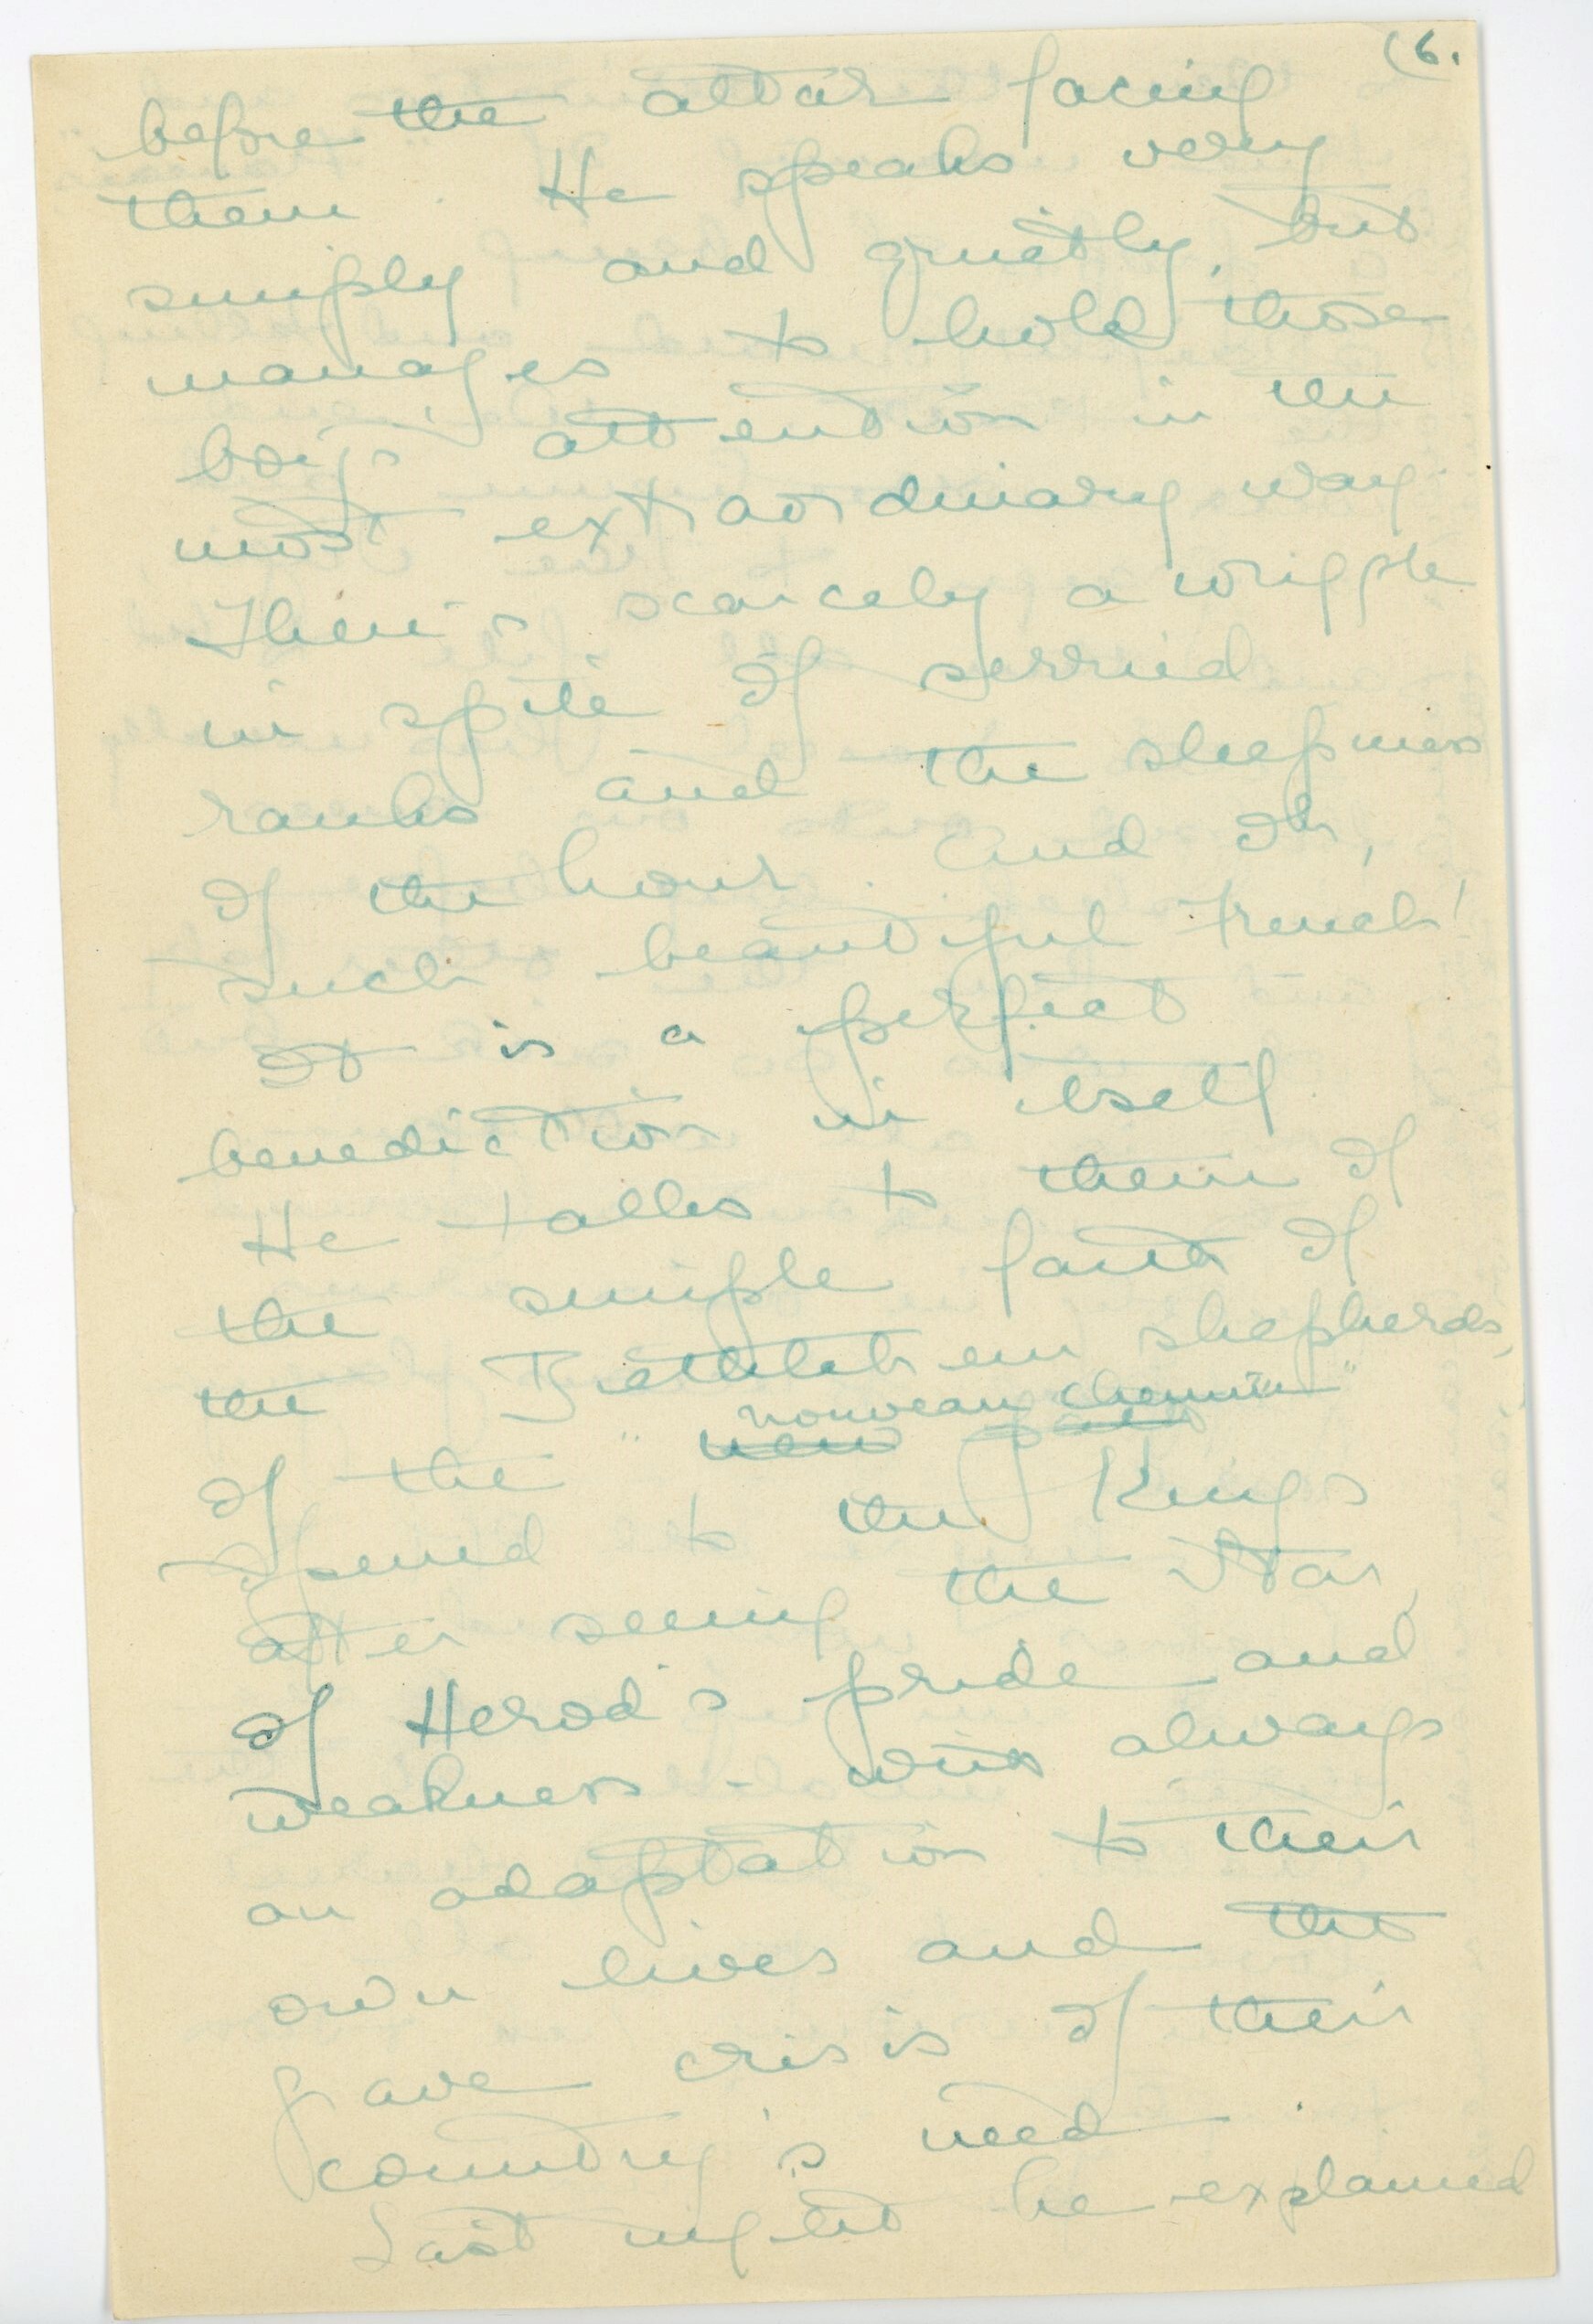 (6.
before the altar facing
them. He speaks very
simply and quietly, but
manages to hold those
boys' attention in the
most extraordinary way.
There's scarcely a wriggle
in spite of serried
ranks and the sleepiness
of the hour. And Oh,
such beautiful French!
It is a perfect
benediction in itself
He talks to them of
the simple faith of
the Bethlehem shepherds,
nouveau chemin"
of the " new path
opened to the Kings
after seeing the Star,
of Herod's pride and
weakness - with always
an adaptation to their
own lives and the
grave crisis of their
country's need.
Last night he explained